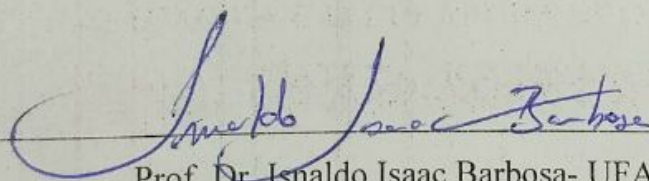 Isnaldo Isaac Barbosa
Prof. Dr. Isnaldo Isaac Barbosa- UFA